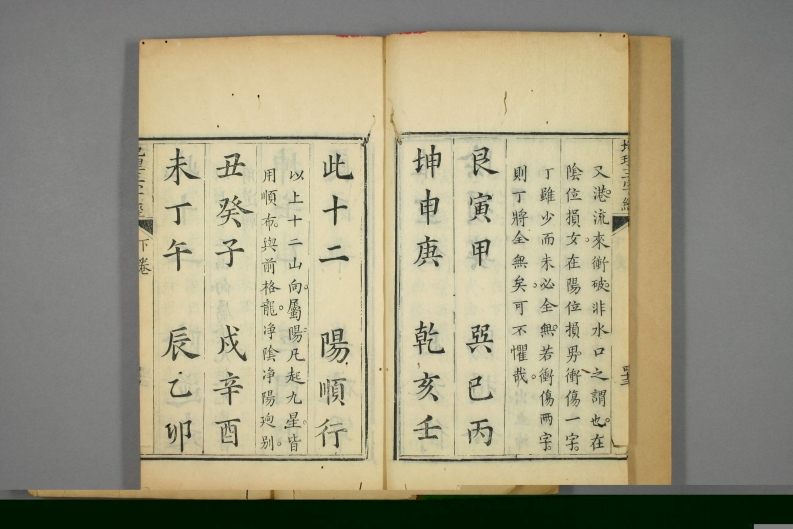 地理三字經
又港流來衝破非水口之謂也在
陰位損女在陽位損男衝傷一字
丁雖少而未必全無若衝傷兩字
則丁將全無矣可不懼哉
艮寅甲 巽巳丙
坤申庚 乾亥壬
此十二 陽順行
以上十二山向屬陽凡起九星皆
用順布與前格龍淨陰淨陽迥別
丑癸子 戌辛酉
未丁午 辰乙卯
地理三字經
下卷